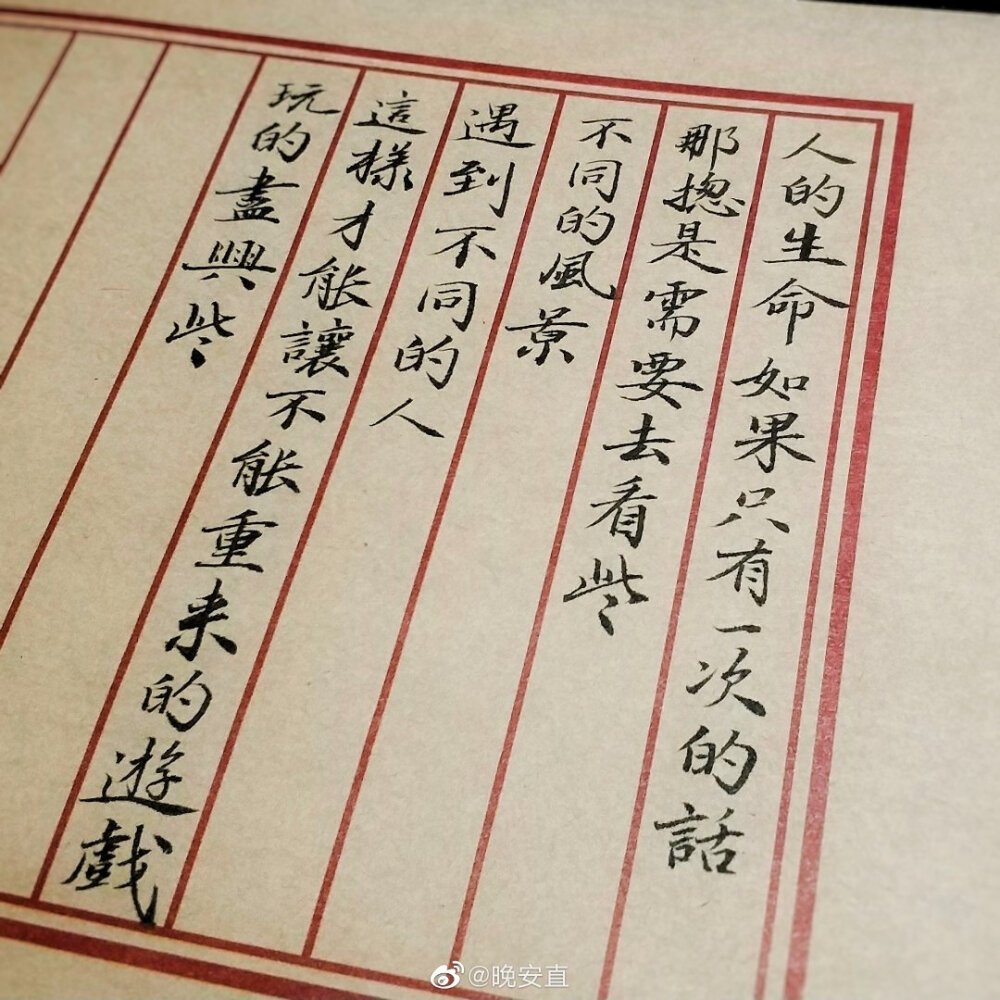 人的生命如果只有一次的話
那揔是需要去看些
不同的風景
遇到不同的人
這樣才能讓不能重来的遊戲
玩的盡興些
@晚安直